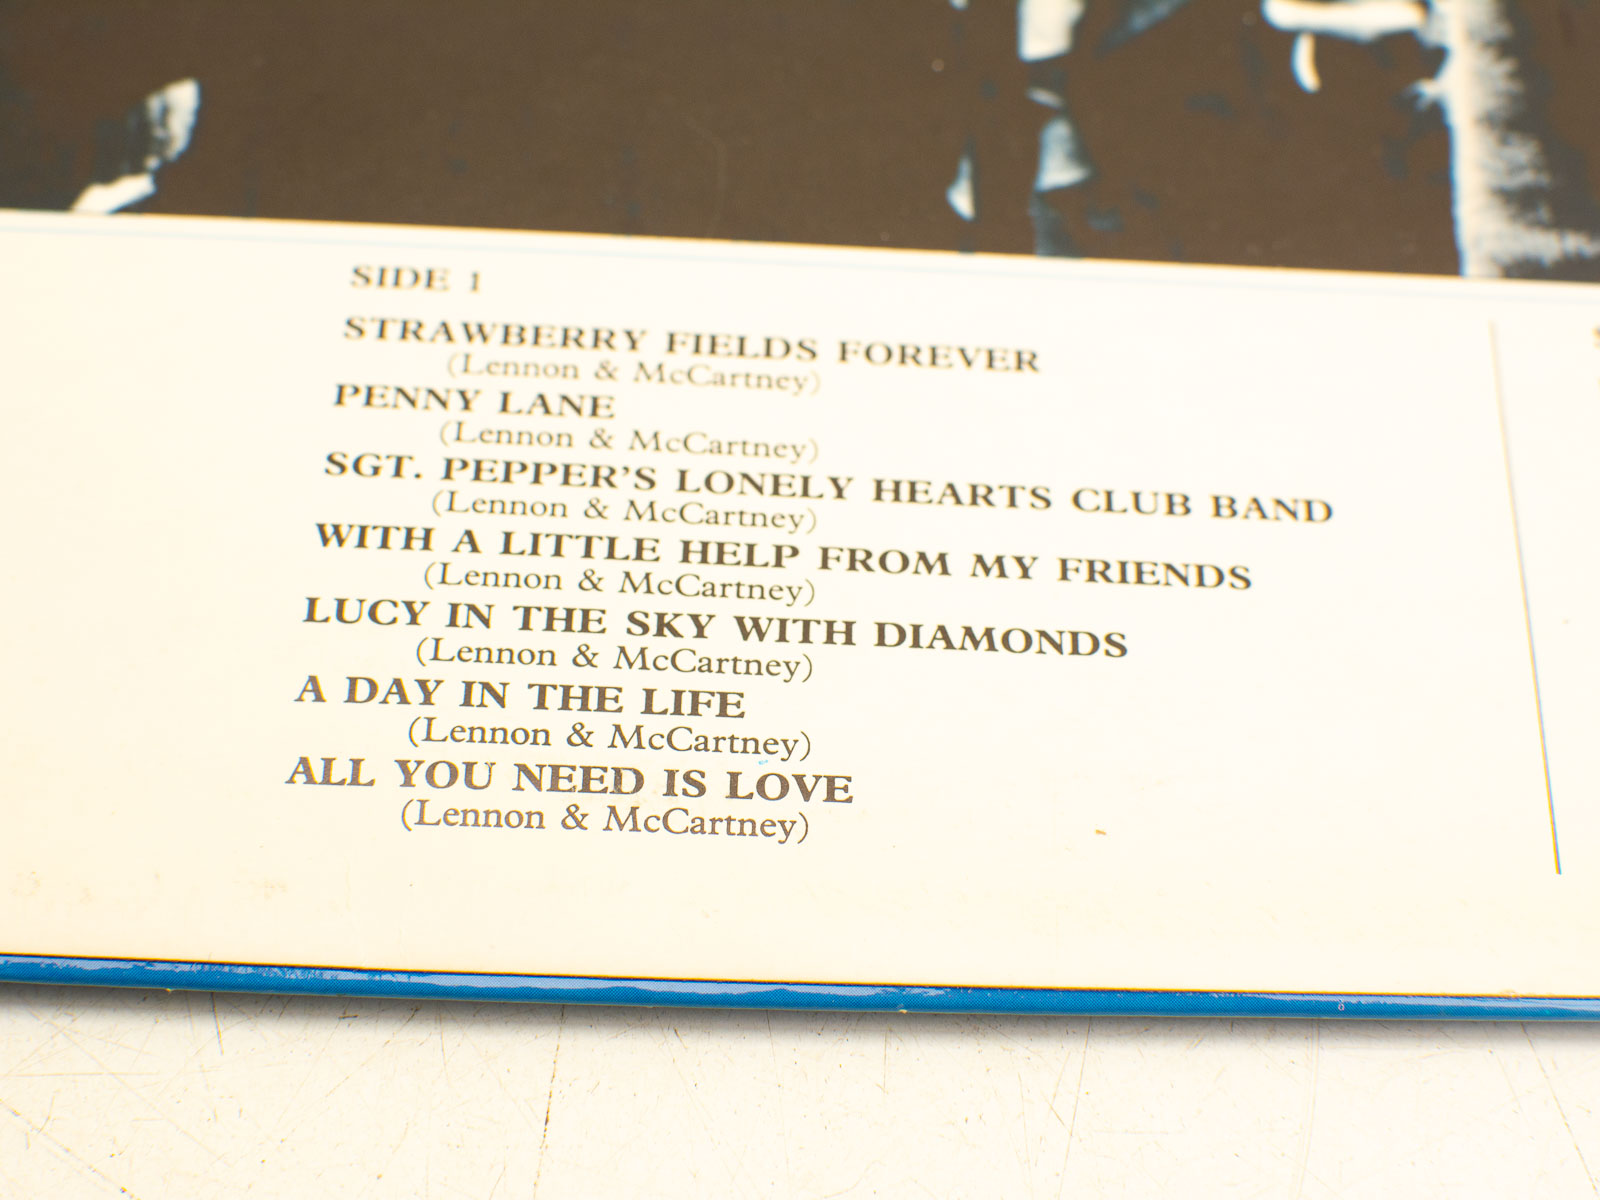 SIDE 1
STRAWBERRY FIELDS FOREVER
(Lennon & McCartney)
PENNY LANE
(Lennon & McCartney)
SGT. PEPPER'S LONELY HEARTS CLUB BAND
(Lennon & McCartney)
WITH A LITTLE HELP FROM MY FRIENDS
(Lennon & McCartney)
LUCY IN THE SKY WITH DIAMONDS
(Lennon & McCartney)
A DAY IN THE LIFE
(Lennon & McCartney)
ALL YOU NEED IS LOVE
(Lennon & McCartney)